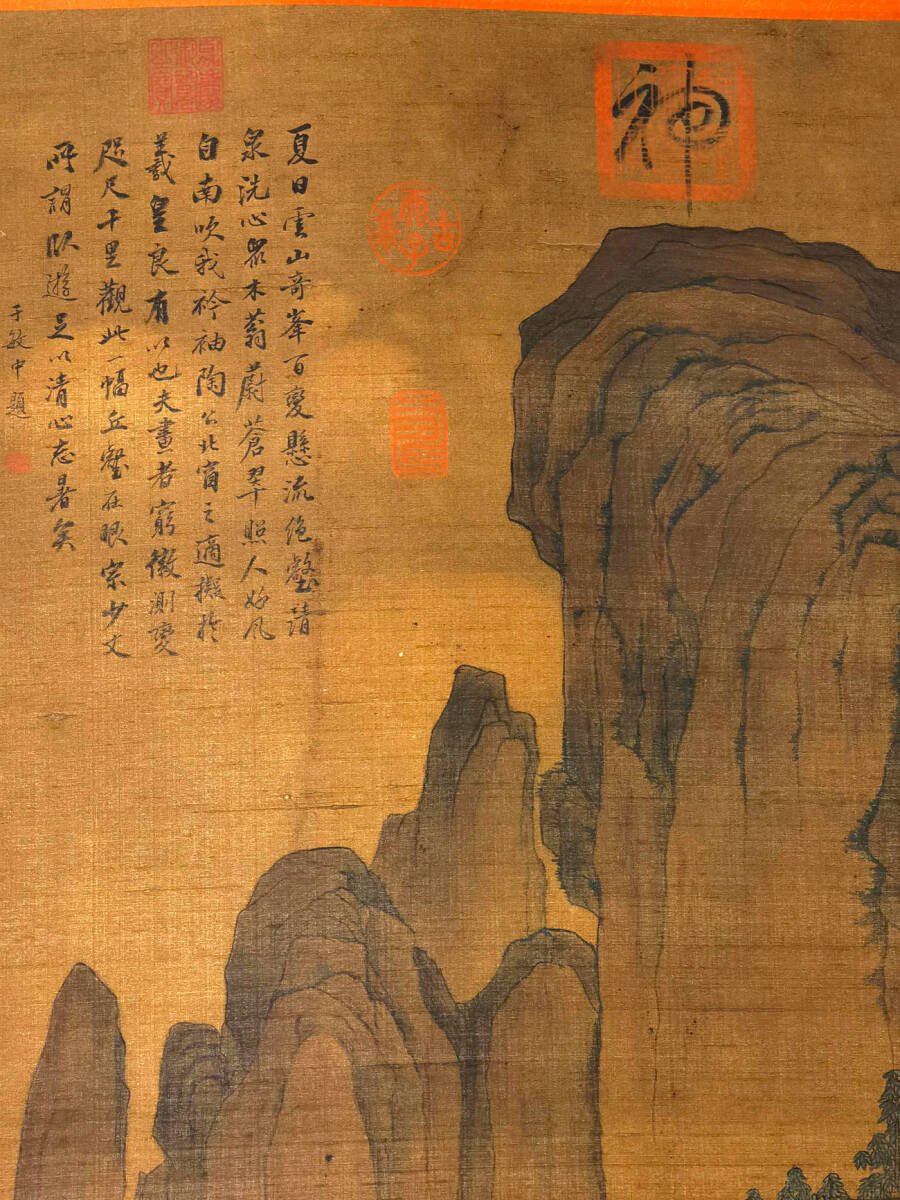 神
古希天子
夏日雲山奇峯百變懸流絶壑清
泉洗心眾木蓊蔚蒼翠照人好風
自南吹我衿袖陶公北窗之適擬於
羲皇良有以也夫畫者窮微測變
咫尺千里觀此一幅丘壑在眼宗少文
所謂臥遊足以清心忘暑矣
于敏中題